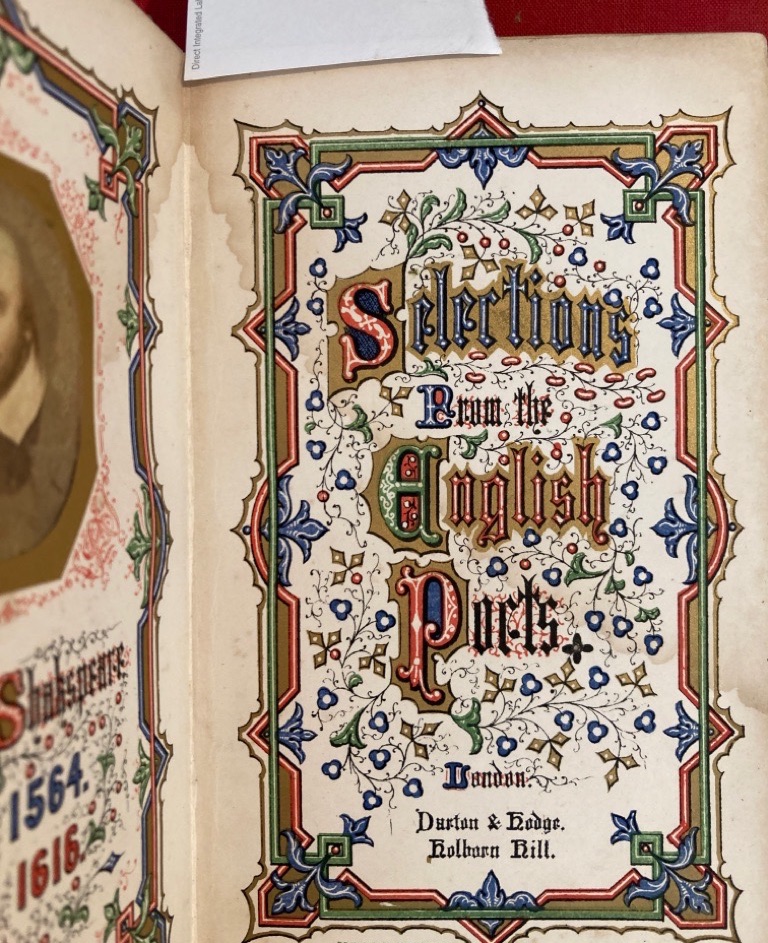 Direct Integrated La
Shakspeare
1564.
1616.
Selections
From the
English
Poets.
London.
Darton & Hodge.
Holborn Hill.